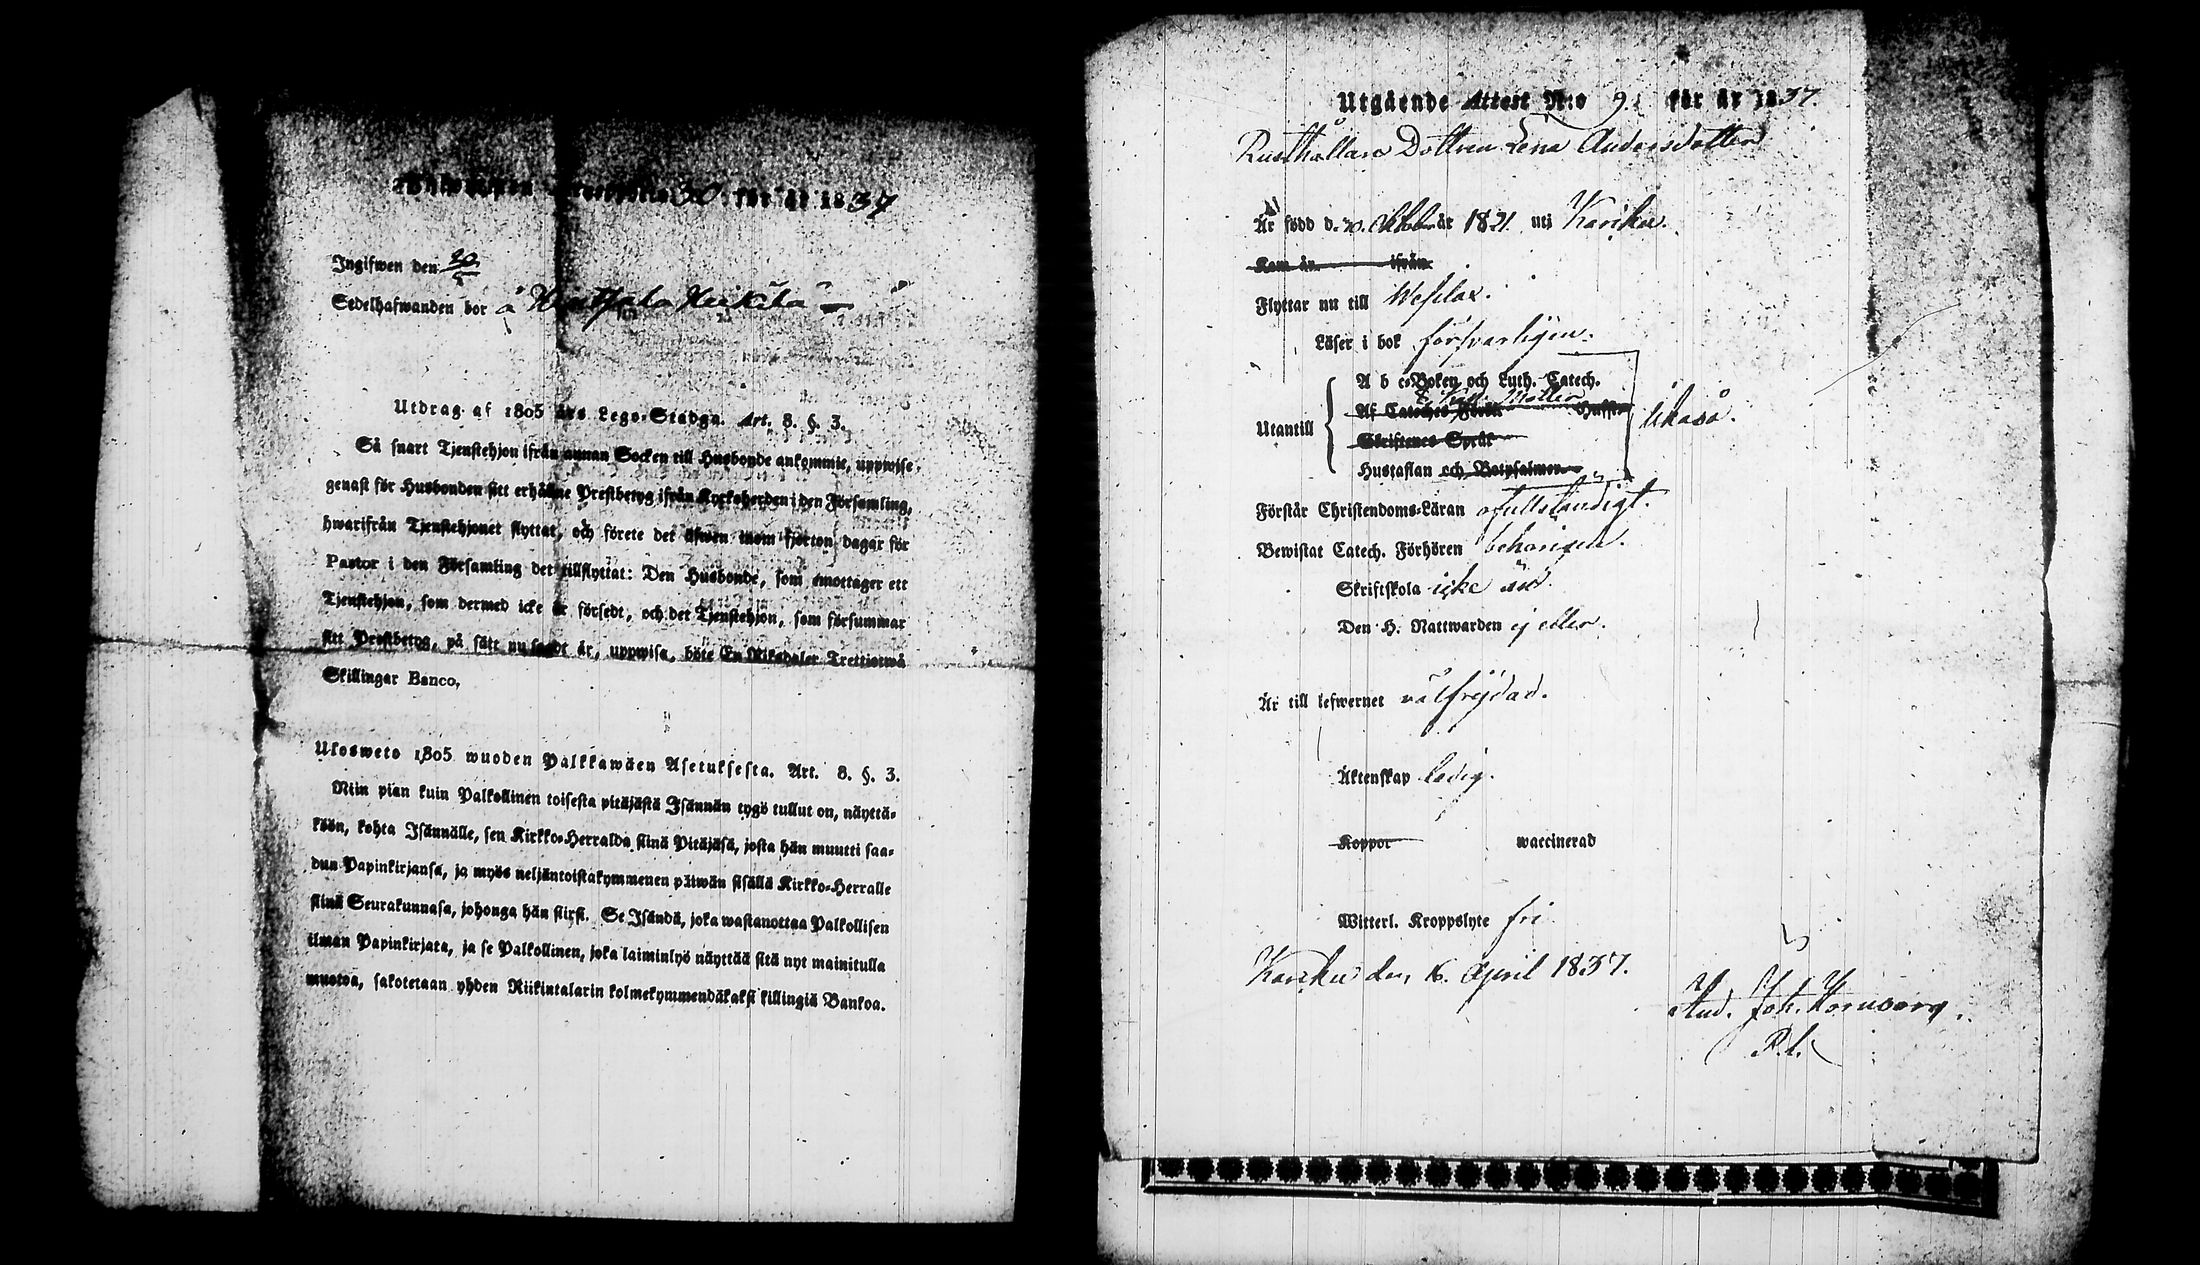 30 för år 1837
Ingifwen den 20/5
Sedelhafwanden bor å
Utdrag af 1805 års Lego-Stadga. Art. 8. §. 3.
Så snart Tjenstehjon ifrån annan Socken till Husbonde ankommit, uppwise
genast för Husbonden sitt erhållne Prestbetyg ifrån Kyrkoherden i den Församling,
hwarifrån Tjenstehjonet flyttat, och förete det äfwen inom fjorton dagar för
Pastor i den Församling det tillflyttat: Den Husbonde, som emottager ett
Tjenstehjon, som dermed icke är försedt, och det Tjenstehjon, som försummar
sitt Prestbetyg, på sätt nu sagdt är, uppwisa, böte En Riksdaler Trettiotwå
Skillingar Banco.
Ulosweto 1805 wuoden Palkkawäen Asetuksesta. Art. 8. §. 3.
Niin pian kuin Palkollinen toisesta pitäjästä Isännän tygö tullut on, näyttä-
köön, kohta Isännälle, sen Kirkko-Herralda siinä Pitäjäsä, josta hän muutti saa-
dun Papinkirjansa, ja myös neljäntoistakymmenen päiwän sisällä Kirkko-Herralle
siinä Seurakunnasa, johonga hän siirsi. Se Isändä, joka wastanottaa Palkollisen
ilman Papinkirjata, ja se Palkollinen, joka laiminlyö näyttää sitä nyt mainitulla
muotoa, sakotetaan yhden Riikintalarin kolmekymmendäkaksi killingiä Bankoa.
Utgående Attest N:o 9. för år 1837.
Rusthållare Dottren Lena Andersdotter
Är född d. 20. Oktober år 1821 uti Karikes.
Kom år ifrån
Flyttar nu till
Läser i bok försvarligen.
A b c-Boken och Luth. Catech.
Af Cateches Förkl. Huffst
Utantill likaså.
Skriftenes Språk
Hustaflan och Botpsalmer
Förstår Christendoms-Läran ofullständigt.
Bewistat Catech. Förhören behörigen.
Skriftskola icke än
Den H. Nattwarden ej eller.
Är till lefwernet välfrejdad.
Äktenskap ledig.
Koppor waccinerad
Witterl. Kroppslyte fri
den 16. April 1837.
And. Joh. Hornborg.